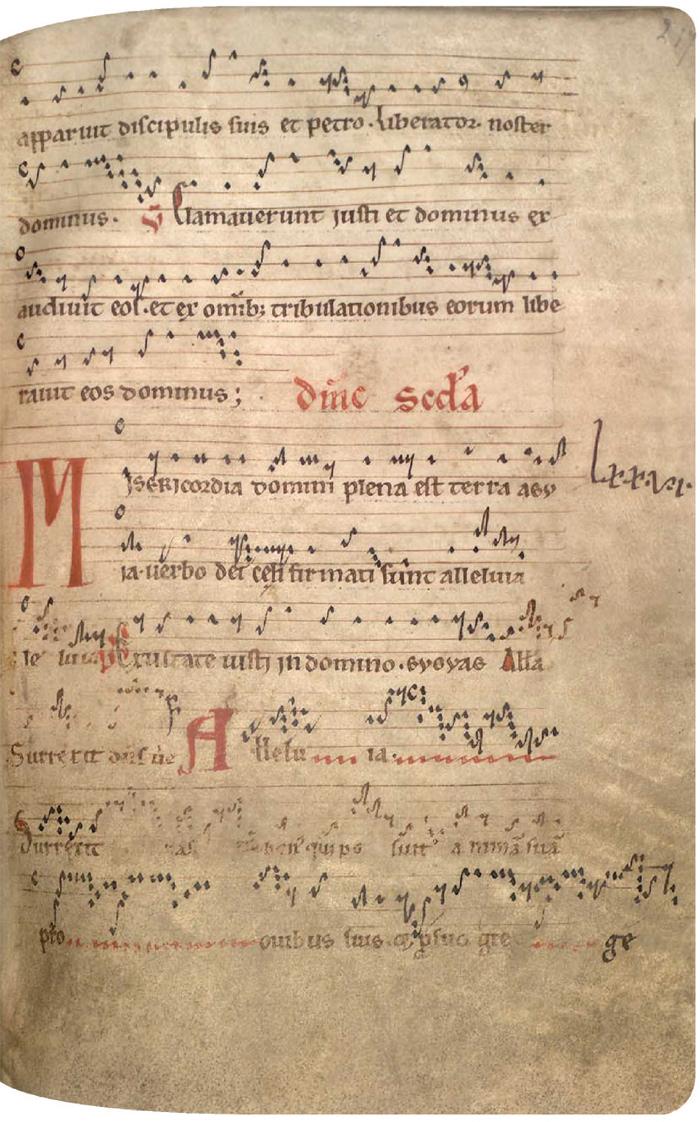 apparuit discipulis suis et petro. Liberator noster
dominus. S Clamauerunt justi et dominus ex
audiuit eos. et ex omib; tribulationibus eorum libe
rauit eos dominus;
MISERICORDIA domini plena est terra aeu
lxxvi.
ia. uerbo dei celi firmati sunt alleluia
ps Exultate iusti in domino. euouae Alla
Surrexit Allelu ia.
Surrexit qui pro suis animā suā
pro ouibus suis et p suo gre ge